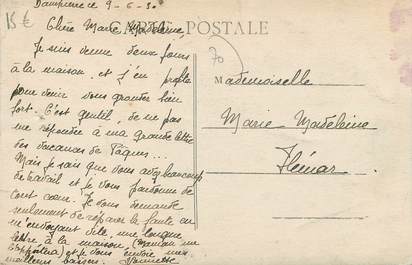 15€
Dampierre ce 9-6-30
Chère Marie Madeleine
CARTE POSTALE
70
Je suis venue deux jours
à la maison et j'en profite
pour venir vous gronder bien
fort. C'est gentil, de ne pas
me répondre à ma grande lettre
des vacances de Pâques...
Mais je sais que vous avez beaucoup
de travail et je vous pardonne de
tout cœur. Je vous demande
seulement de réparer la faute en
m'envoyant vite, une longue
lettre à la maison (maman me
l'expédiera) et je vous envoie mes
meilleurs baisers.
Mademoiselle
Marie Madeleine
Flénar